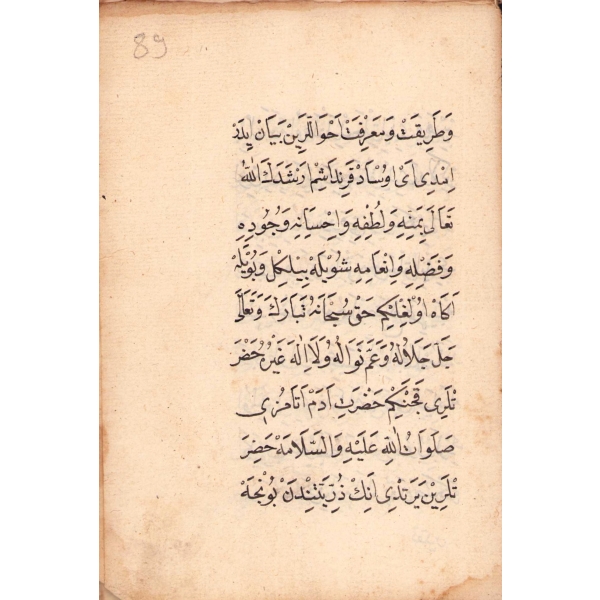 89
وَطَرِيقَتْ وَمَعْرِفَتْ اَحْوَاللَّرِينْ بَيَانْ اِيدَرْ
اِمْدِى اَىْ اُوسْتَادْ قَرِنْدَاشِمْ اَرْشَدَكَ اللّٰهُ
تَعَالَى بِمَنِّهِ وَلُطْفِهِ وَاِحْسَانِهِ وَجُودِهِ
وَفَضْلِهِ وَاِنْعَامِهِ شُوْيلَهْ بِيلْكِلْ وَبُويْلَهْ
اَكَاهْ اُولْغِلْكِمْ حَقْ سُبْحَانَهُ تَبَارَكَ وَتَعَالَى
جَلَّ جَلَالُهُ وَعَمَّ نَوَالُهُ وَلَا اِلٰهَ غَيْرُهُ حَضْرَ
تْلَرِى قَچَنْكِمْ حَضْرَتِ اٰدَمْ اَتَامُزِى
صَلَوَاتُ اللّٰهِ عَلَيْهِ وَالسَّلَامَهْ حَضْرَ
تْلَرِينْ يَرَتْدِى اَنِكْ ذُرِّيَّتِنْدَنْ بُونْجَهْ